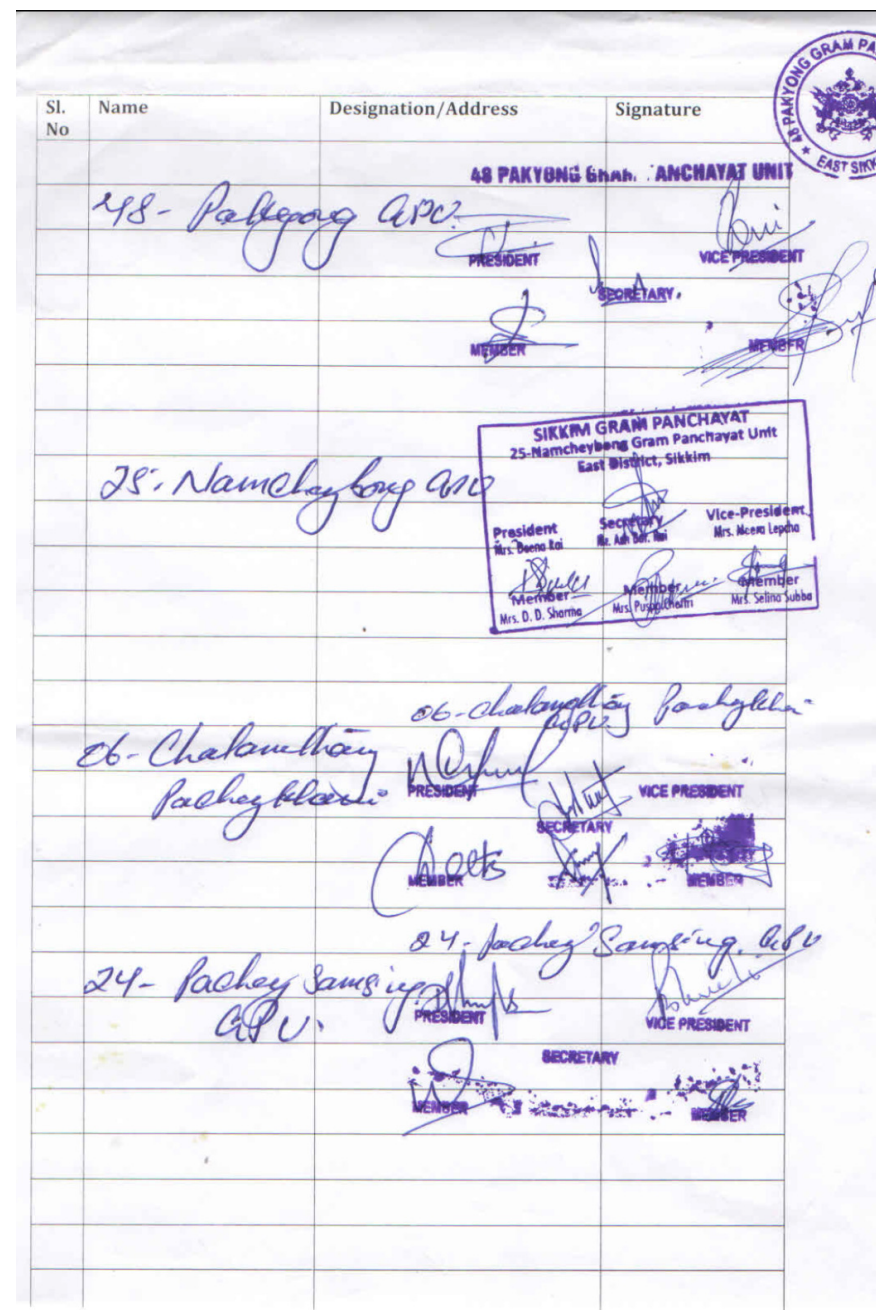 48 PAKYONG GRAM PA
EAST SIKK
Sl. No Name Designation/Address Signature
48 PAKYONG ANCHAYAT UNIT
48- Pakyong GPU.
PRESIDENT VICE PRESIDENT
SECRETARY.
MEMBER MEMBER
SIKKIM GRAM PANCHAYAT
25-Namcheybong Gram Panchayat Unit
East District, Sikkim
25. Namcheybong GPU
President Secretary Vice-President
Mrs. Beena Rai Mr. Ash Bdr. Rai Mrs. Meera Lepcha
Member Member Member
Mrs. D. D. Sharma Mrs. Puspa Chettri Mrs. Selina Subba
06-Chalamthang Pacheykhani
GPU
06-Chalamthang
Pacheykhani
PRESIDENT VICE PRESIDENT
SECRETARY
MEMBER MEMBER
24- Pachey Samsing. GPU
24- Pachey Samsing
GPU.
PRESIDENT VICE PRESIDENT
SECRETARY
MEMBER MEMBER